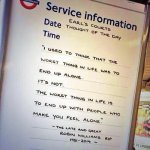 Service information
EARL'S COURTS
Date THOUGHT OF THE DAY
Time
"I USED TO THINK THAT THE
WORST THING IN LIFE WAS TO
END UP ALONE.
IT'S NOT.
THE WORST THING IN LIFE IS
TO END UP WITH PEOPLE WHO
MAKE YOU FEEL ALONE"
- THE LATE AND GREAT
ROBIN WILLIAMS RIP
1951-2014 -